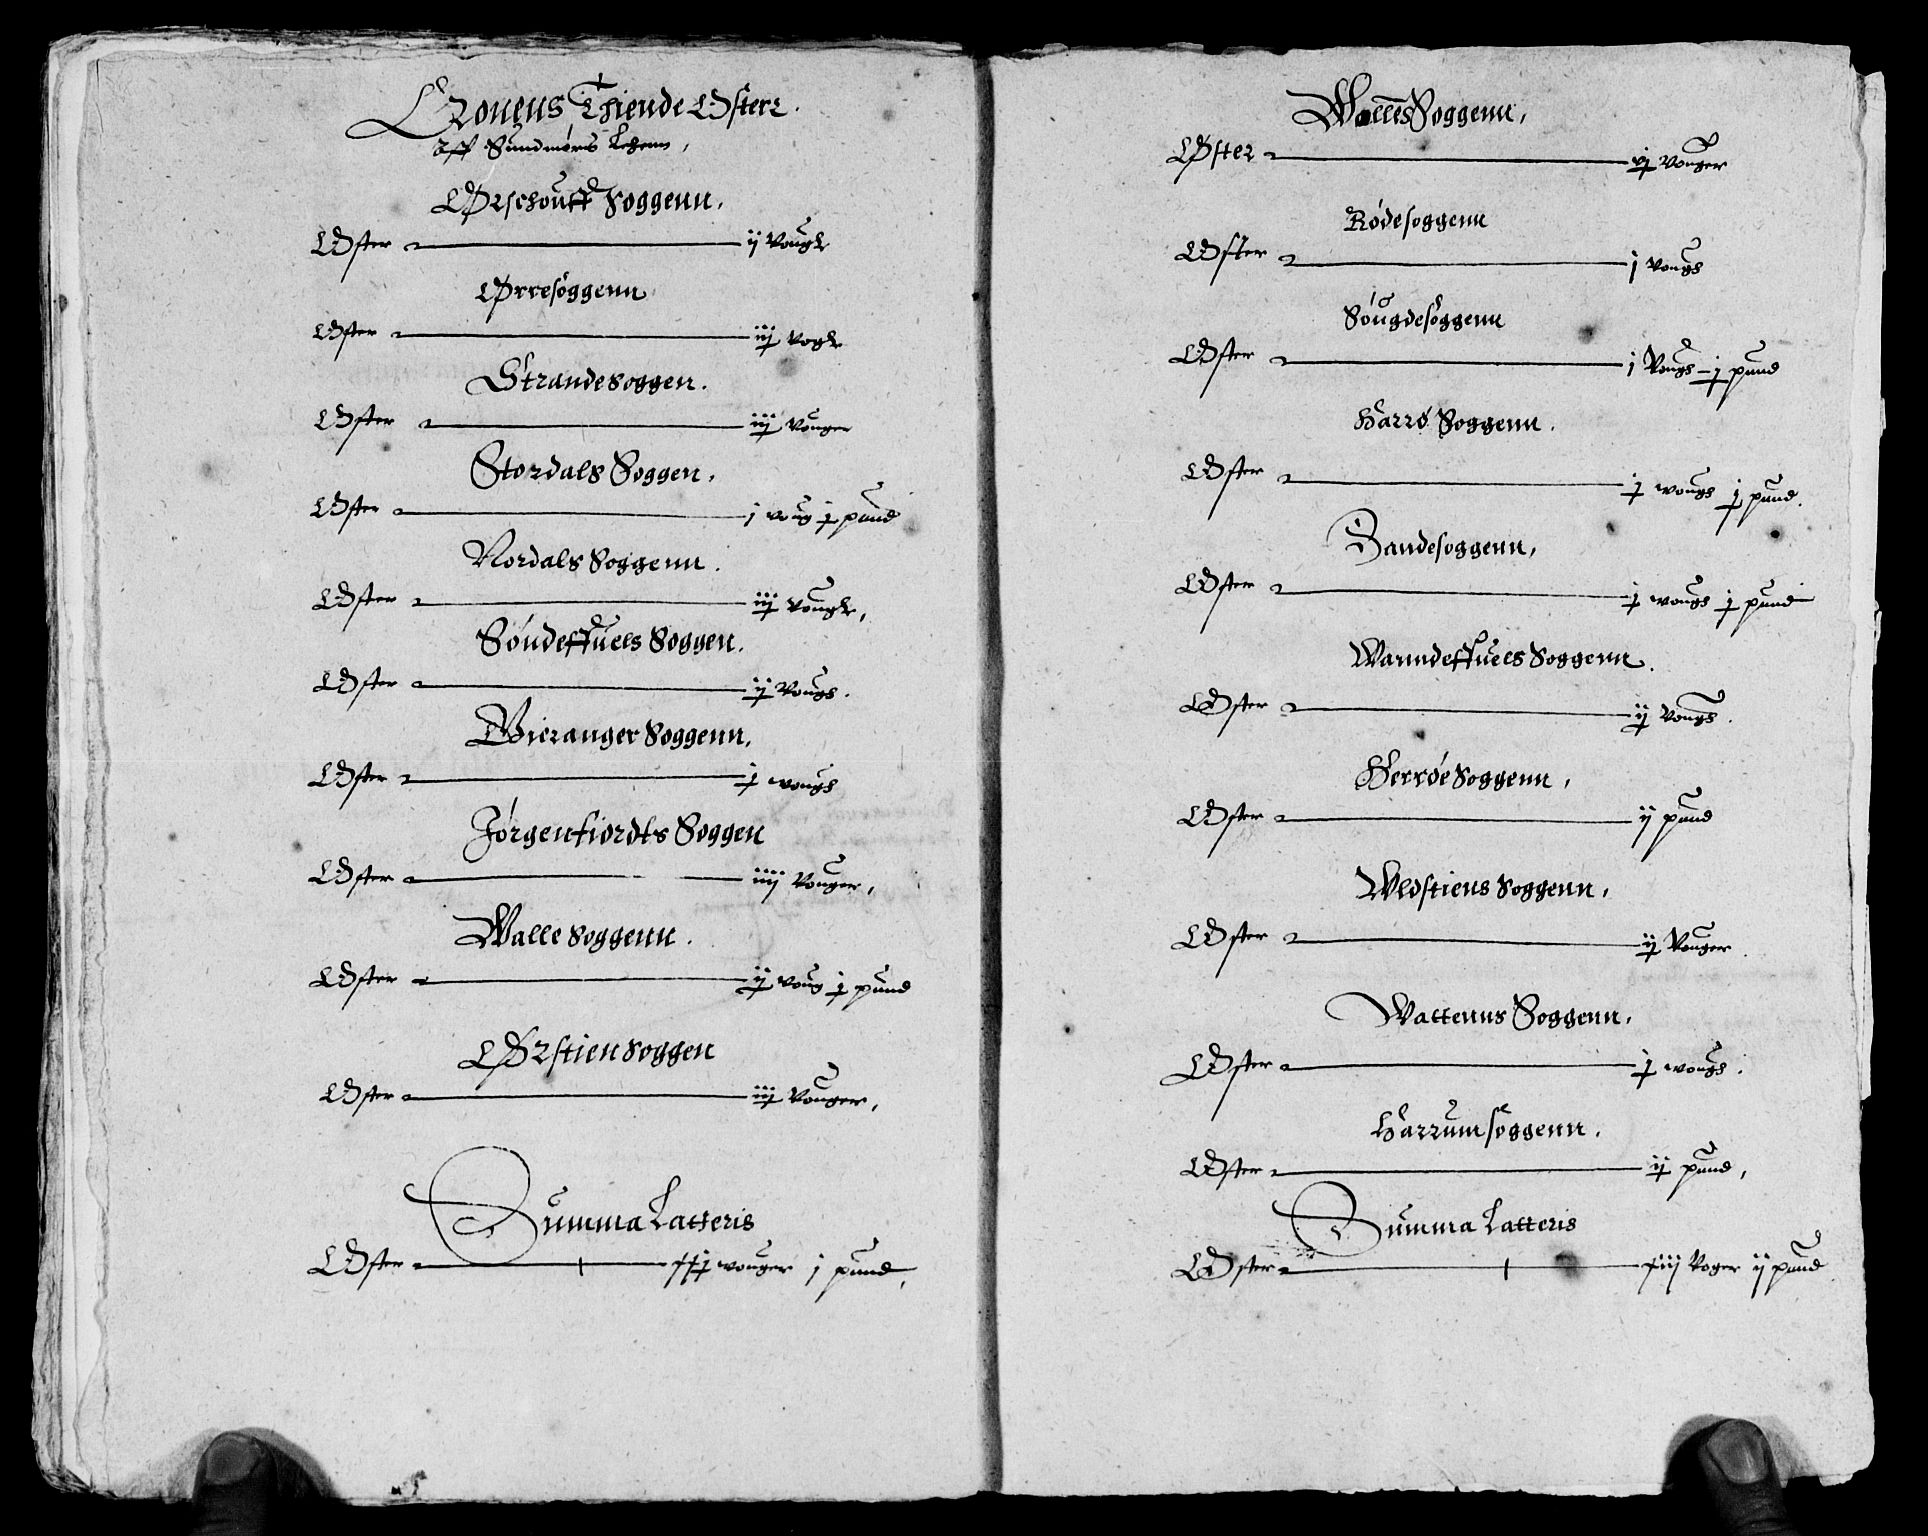 Cronens Thiende Osterr.
Aff Sundmørs Lehenn,
Ørschouff Soggenn.
Oster — ij vougr
Ørresoggenn
Oster — iij vogr
Strandesoggen.
Oster — iij vouger
Stordals Soggen.
Oster — j voug j pund
Nordals Soggenn.
Oster — iij vougr,
Søndeffuels Soggen.
Oster — ij vougs.
Gieranger Soggenn.
Oster — j wougs
Jørgenfiordts Soggen
Oster — iiij vouger,
Walle Soggenn.
Oster — ij voug j pund
Ørstien Soggen
Oster — iij vouger,
Summa Latteris
Oster — wouger j pund,
Soggenn,
Oster — vouger
Rødesoggenn
Oster — j vougs
Søugdesoggenn
Oster — j vougs j pund
Harrø Soggenn.
Oster — j wougs j pund.
Sandesoggenn,
Oster — j wougs j pund
Wanndeffuels Soggenn.
Oster — ij vougs.
Herrøe Soggenn,
Oster — ij pund
Wldstiens Soggenn,
Oster — ij vouger.
Wattenns Soggenn,
Oster — j wougs.
Harrum soggenn.
Oster — ij pund,
Summa Latteris
Oster — xiij voger ij pund